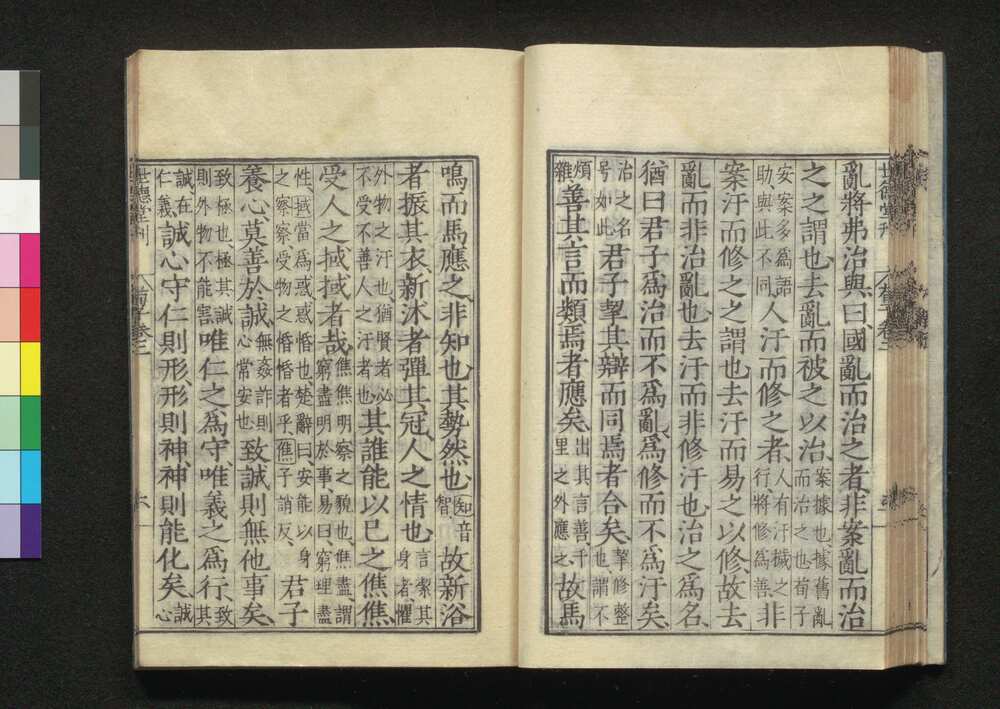 亂將弗治與曰國亂而治之者非案亂而治
之之謂也去亂而被之以治案據也據舊亂而治之也荀子
安案多爲語助與此不同人汙而修之者人有汙穢之行將修爲善非
案汙而修之之謂也去汙而易之以修故去
亂而非治亂也去汙而非修汙也治之爲名
猶曰君子爲治而不爲亂爲修而不爲汙矣
治之名号如此君子挈其辯而同焉者合矣挈修整也謂不
煩雜善其言而類焉者應矣出其言善千里之外應之故馬
鳴而馬應之非知也其勢然也知音智故新浴
者振其衣新沐者彈其冠人之情也言潔其身者懼
外物之汙也猶賢者必不受不善人之汙者也其誰能以己之僬僬
受人之掝掝者哉僬僬明察之貌也僬盡謂窮盡明於事易曰窮理盡
性掝當爲惑惑惛也楚辭曰安能以身之察察受物之惛惛者乎僬子誚反君子
養心莫善於誠無姦詐則心常安也致誠則無他事矣
致極也極其誠則外物不能害唯仁之爲守唯義之爲行致其
誠在仁義誠心守仁則形形則神神則能化矣誠心
世德堂刊 荀子卷二 六